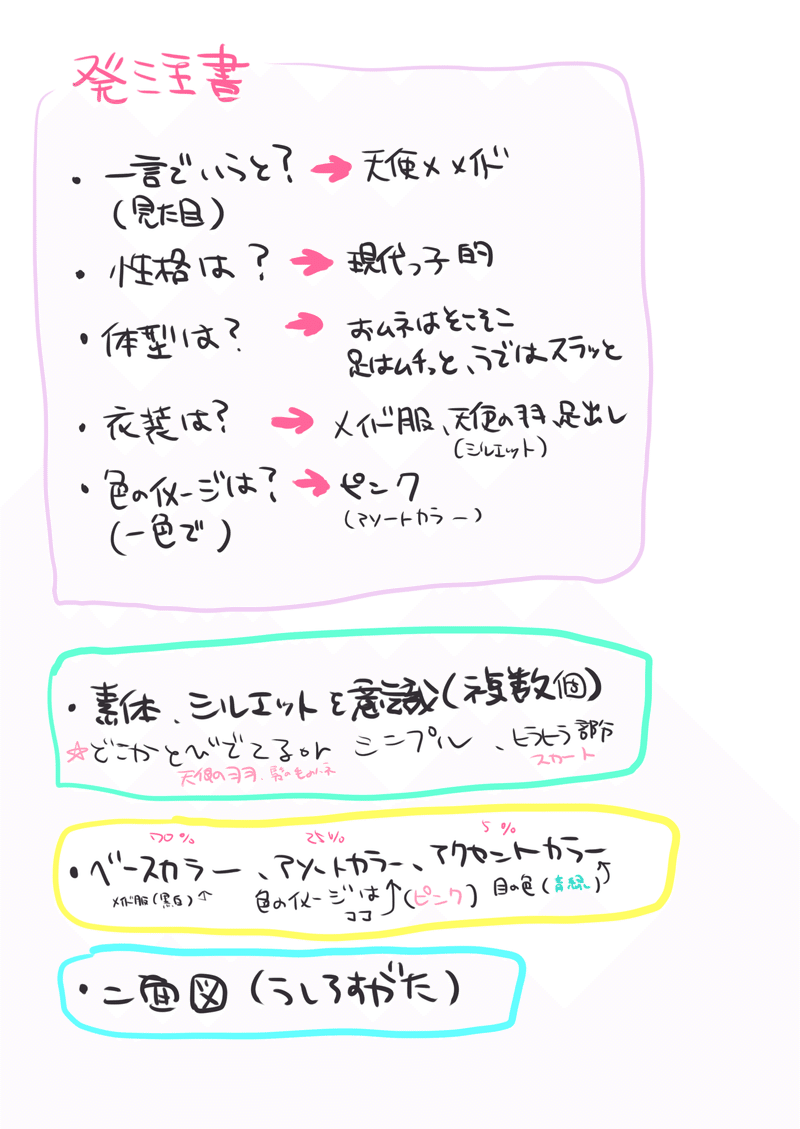 発注書
・一言でいうと？ → 天使×メイド
(見た目)
・性格は？ → 現代っ子的
・体型は？ → おムネはそこそこ
足はムチっと、うではスラッと
・衣装は？ → メイド服、天使の羽、足出し
(シルエット)
・色のイメージは？ → ピンク
(一色で) (アソートカラー)
・素体、シルエットを意識(複数個)
☆どこかとびでてるor シンプル、ヒラヒラ部分
天使の羽、髪のもの スカート
70% 25% 5%
・ベースカラー、アソートカラー、アクセントカラー
メイド服(黒白)↑ 色のイメージは↑(ピンク) 目の色(青緑)↑
ココ
・二面図(うしろすがた)